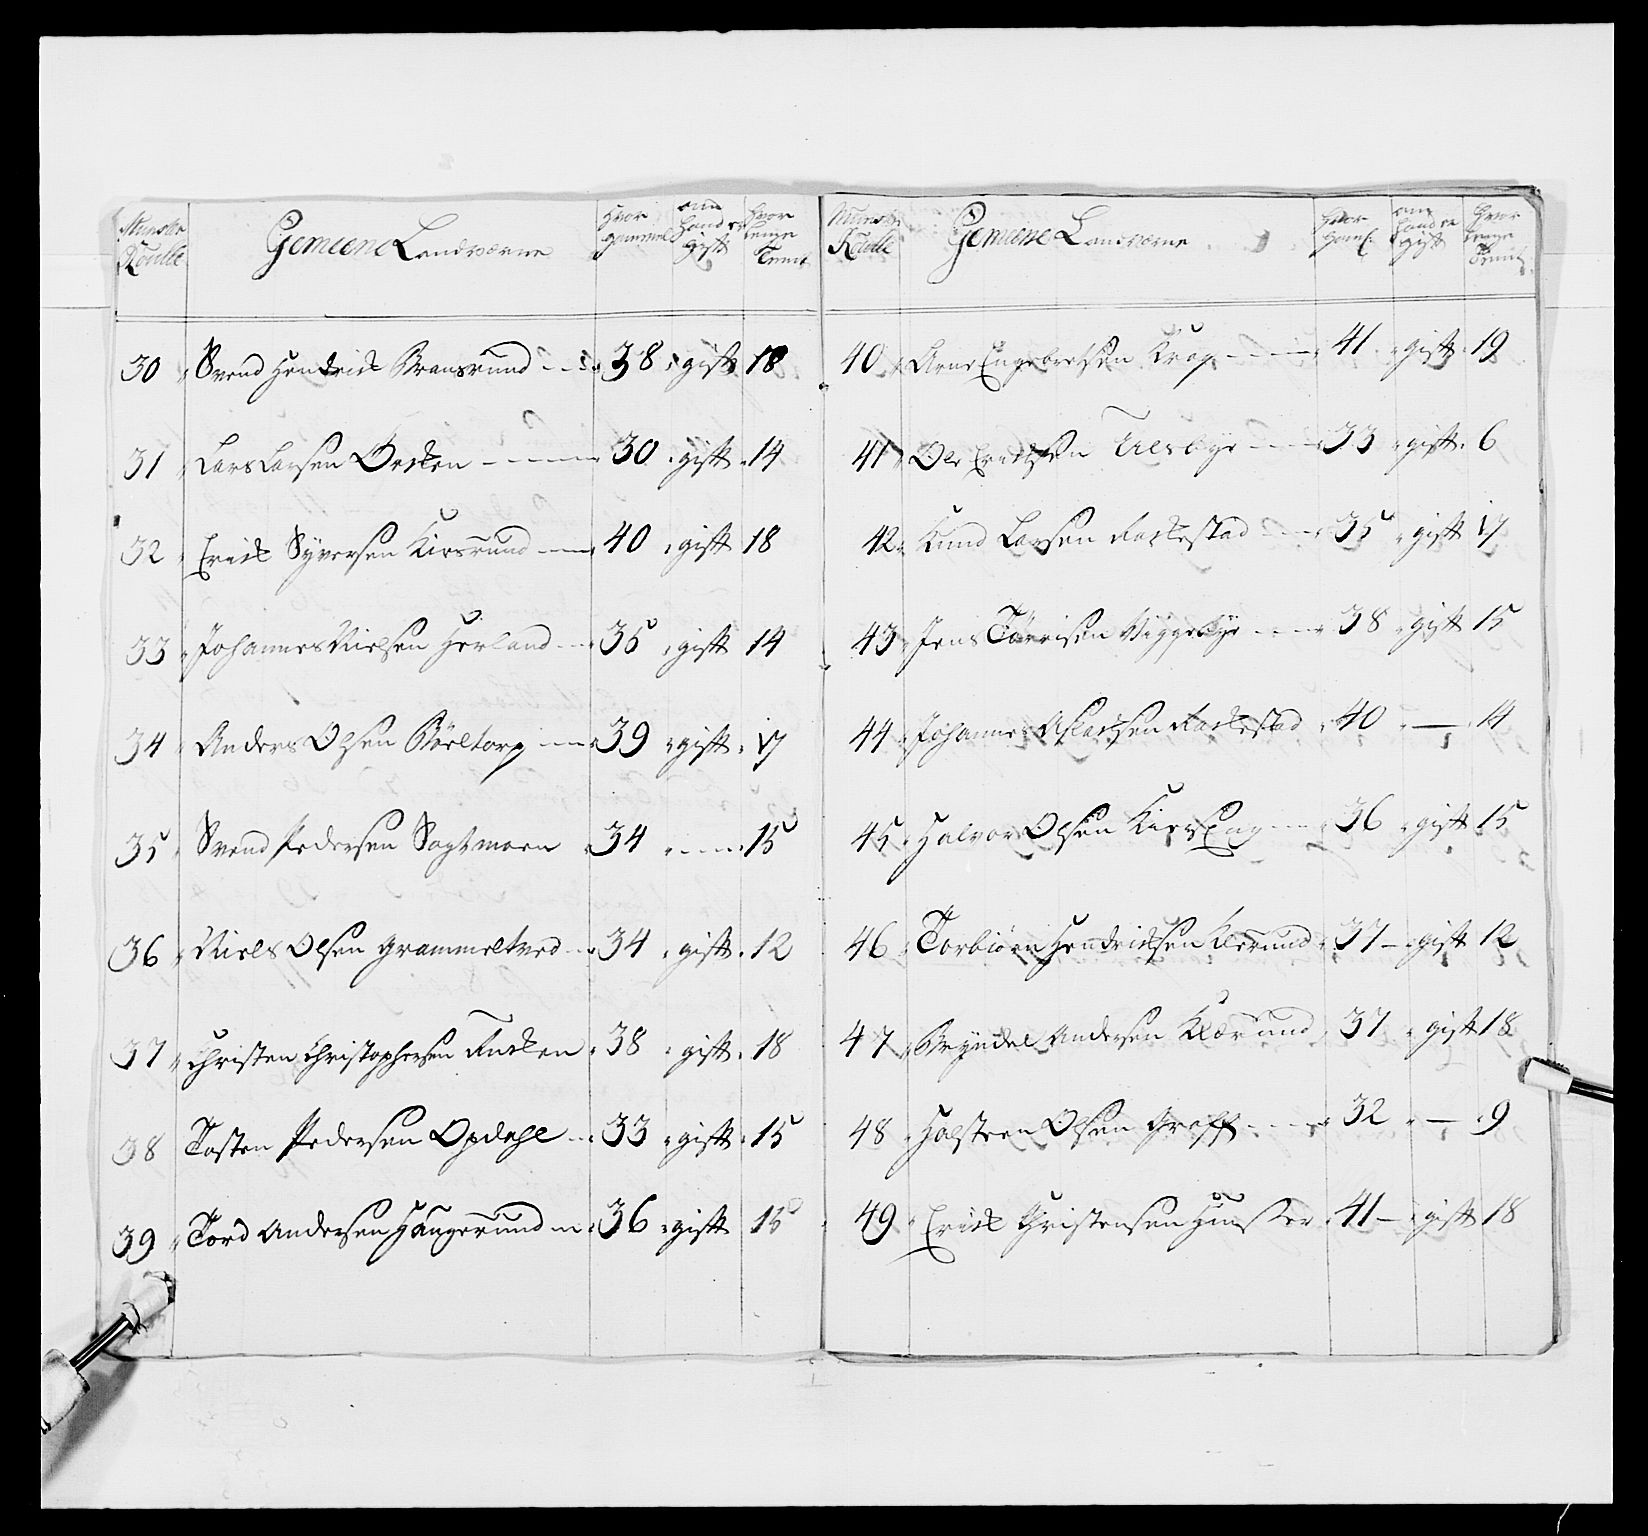 Munster Roulle Gemeene Landværne Hvor gammel om hand er gift hvor lenge Tient
30 Svend Hendrichs Bransrund 38 gift 18
31 Lars Larsen Oerken 30 gift 14
32 Erich Syversen Kiersrund 40 gift 18
33 Johannes Nielsen Herland 35 gift 14
34 Anders Olsen Böeltorp 39 gift 17
35 Svend Pedersen Sagtmoen 34 15
36 Niels Olsen Grammeltved 34 gift 12
37 Christen Christophersen 38 gift 18
38 Tosten Pedersen Opdahl 33 gift 15
39 Tord Andersen Haugerund 36 gift 15
Munster Roulle Gemeene Landværne hvor gaml: om hand er gift hvor lenge Tient
40 Arne Engebretsen Krog 41 gift 19
41 Ole Erichsen 33 gift 6
42 Knud Larsen Rackestad 35 gift 17
43 Jens Törrisen Viggebye 38 gift 15
44 Johannes Aslachsen Rackestad 40 — 14
45 Halvor Olsen Kiers Eng 36 gift 15
46 Torbiörn Hendrichsen Klerund 37 gift 12
47 Bryndel Andersen Klærund 37 gift 18
48 Holsteen Olsen Graff 32 — 9
49 Erich Christensen 41 gift 18